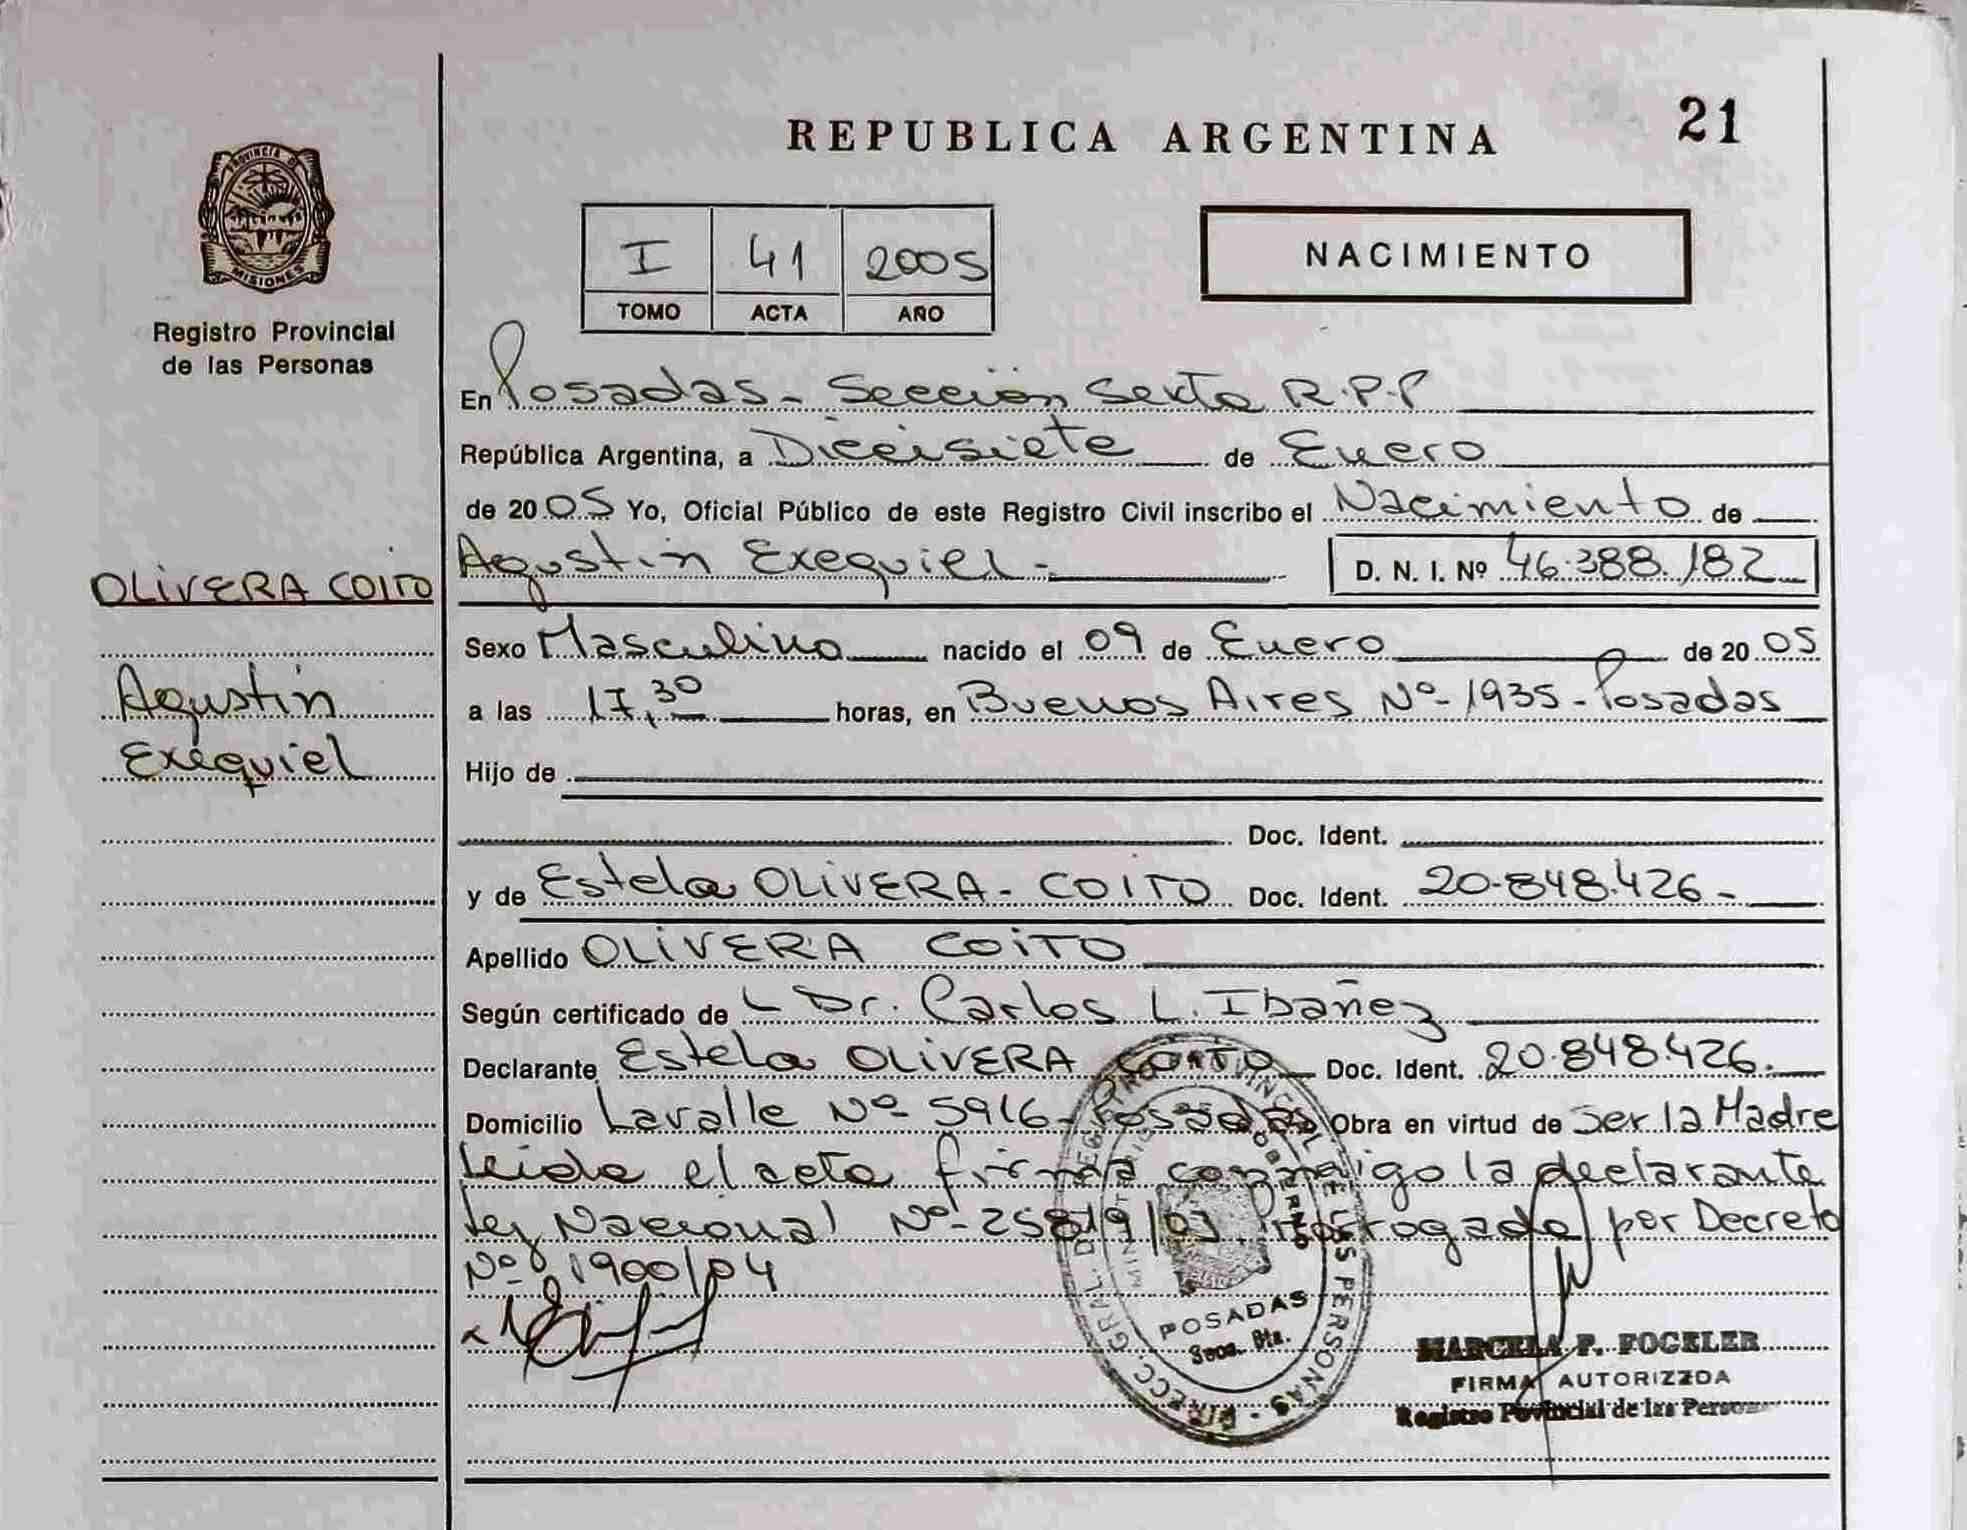 REPUBLICA ARGENTINA
21
PROVINCIA DE
MISIONES
Registro Provincial
de las Personas
I 41 2005
TOMO ACTA AÑO
NACIMIENTO
En Posadas - Sección Sexta R.P.P
República Argentina, a Diecisiete de Enero
de 2005 Yo, Oficial Público de este Registro Civil inscribo el Nacimiento de
OLIVERA COITO
Agustin Exequiel - D. N. I. Nº 46.388.182
Sexo Masculino nacido el 09 de Enero de 2005
Agustin
a las 17,30 horas, en Buenos Aires Nº 1935 - Posadas
Exequiel
Hijo de
Doc. Ident.
y de Estela OLIVERA - COITO Doc. Ident. 20.848.426 -
Apellido OLIVERA COITO
Según certificado de Dr. Carlos L. Ibañez
Declarante Estela OLIVERA COITO Doc. Ident. 20.848.426.
Domicilio Lavalle Nº 5916 - Posadas Obra en virtud de Ser la Madre
Leida el acta firma conmigo la declarante
Ley Nacional Nº 25819/03. Prorrogada por Decreto
Nº 1900/04
DIRECC. GRAL. DE REGISTRO PROVINCIAL DE LAS PERSONAS
POSADAS
MARCELA P. FOGELER
FIRMA AUTORIZADA
Registro Provincial de las Personas